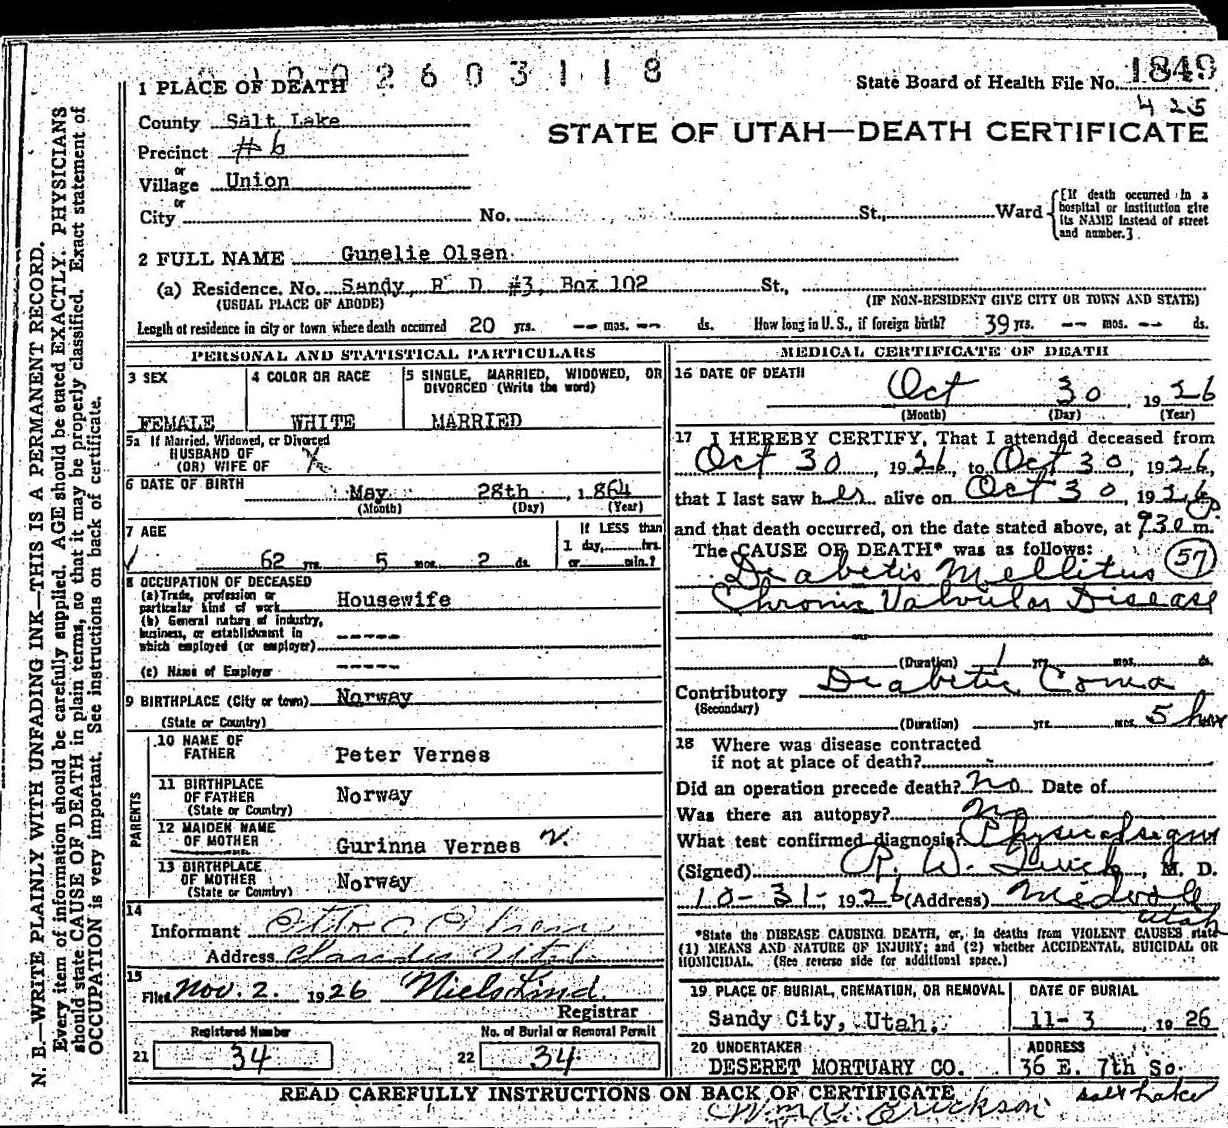 2603118
State Board of Health File No. 1849
425
1 PLACE OF DEATH
STATE OF UTAH—DEATH CERTIFICATE
County Salt Lake
Precinct #6
or
Village Union
or
City No. St., Ward
[If death occurred in a hospital or institution give its NAME instead of street and number.]
2 FULL NAME Gunelie Olsen
(a) Residence. No. Sandy, R D #3, Box 102 St.,
(USUAL PLACE OF ABODE) (IF NON-RESIDENT GIVE CITY OR TOWN AND STATE)
Length of residence in city or town where death occurred 20 yrs. -- mos. -- ds. How long in U. S., if foreign birth? 39 yrs. -- mos. -- ds.
PERSONAL AND STATISTICAL PARTICULARS
3 SEX
FEMALE
4 COLOR OR RACE
WHITE
5 SINGLE, MARRIED, WIDOWED, OR DIVORCED (Write the word)
MARRIED
5a If Married, Widowed, or Divorced
HUSBAND OF
(OR) WIFE OF
6 DATE OF BIRTH May 28th, 1864
(Month) (Day) (Year)
7 AGE
62 yrs. 5 mos. 2 ds.
If LESS than
1 day, hrs.
or min.?
8 OCCUPATION OF DECEASED
(a) Trade, profession or
particular kind of work Housewife
(b) General nature of industry,
business, or establishment in
which employed (or employer) -----
(c) Name of Employer -----
9 BIRTHPLACE (City or town) Norway
(State or Country)
PARENTS
10 NAME OF
FATHER Peter Vernes
11 BIRTHPLACE
OF FATHER Norway
(State or Country)
12 MAIDEN NAME
OF MOTHER Gurinna Vernes
13 BIRTHPLACE
OF MOTHER Norway
(State or Country)
14
Informant Otto
Address Utah
15
Filed Nov. 2. 1926 Niels Lind
Registrar
Registered Number
21 34
No. of Burial or Removal Permit
22 34
MEDICAL CERTIFICATE OF DEATH
16 DATE OF DEATH
Oct 30, 1926
(Month) (Day) (Year)
17 I HEREBY CERTIFY, That I attended deceased from
Oct 30, 1926, to Oct 30, 1926,
that I last saw her alive on Oct 30 1926
and that death occurred, on the date stated above, at 930 P m.
The CAUSE OF DEATH* was as follows:
Diabetis Mellitus 57
Chronic Valvular Disease
(Duration) 1 yrs. mos. ds.
Contributory Diabetic Coma
(Secondary)
(Duration) yrs. mos. 5 hrs
18 Where was disease contracted
if not at place of death?
Did an operation precede death? no Date of
Was there an autopsy? no
What test confirmed diagnosis? Physical signs
(Signed) R. W. M. D.
10-31-1926 (Address) Midvale
Utah
*State the DISEASE CAUSING DEATH, or, in deaths from VIOLENT CAUSES state
(1) MEANS AND NATURE OF INJURY; and (2) whether ACCIDENTAL, SUICIDAL OR
HOMICIDAL. (See reverse side for additional space.)
19 PLACE OF BURIAL, CREMATION, OR REMOVAL
Sandy City, Utah.
DATE OF BURIAL
11-3, 1926
20 UNDERTAKER
DESERET MORTUARY CO.
ADDRESS
36 E. 7th So.
Salt Lake
READ CAREFULLY INSTRUCTIONS ON BACK OF CERTIFICATE
Erickson
N. B.—WRITE PLAINLY WITH UNFADING INK—THIS IS A PERMANENT RECORD.
Every item of information should be carefully supplied. AGE should be stated EXACTLY. PHYSICIANS
should state CAUSE OF DEATH in plain terms, so that it may be properly classified. Exact statement of
OCCUPATION is very important. See instructions on back of certificate.